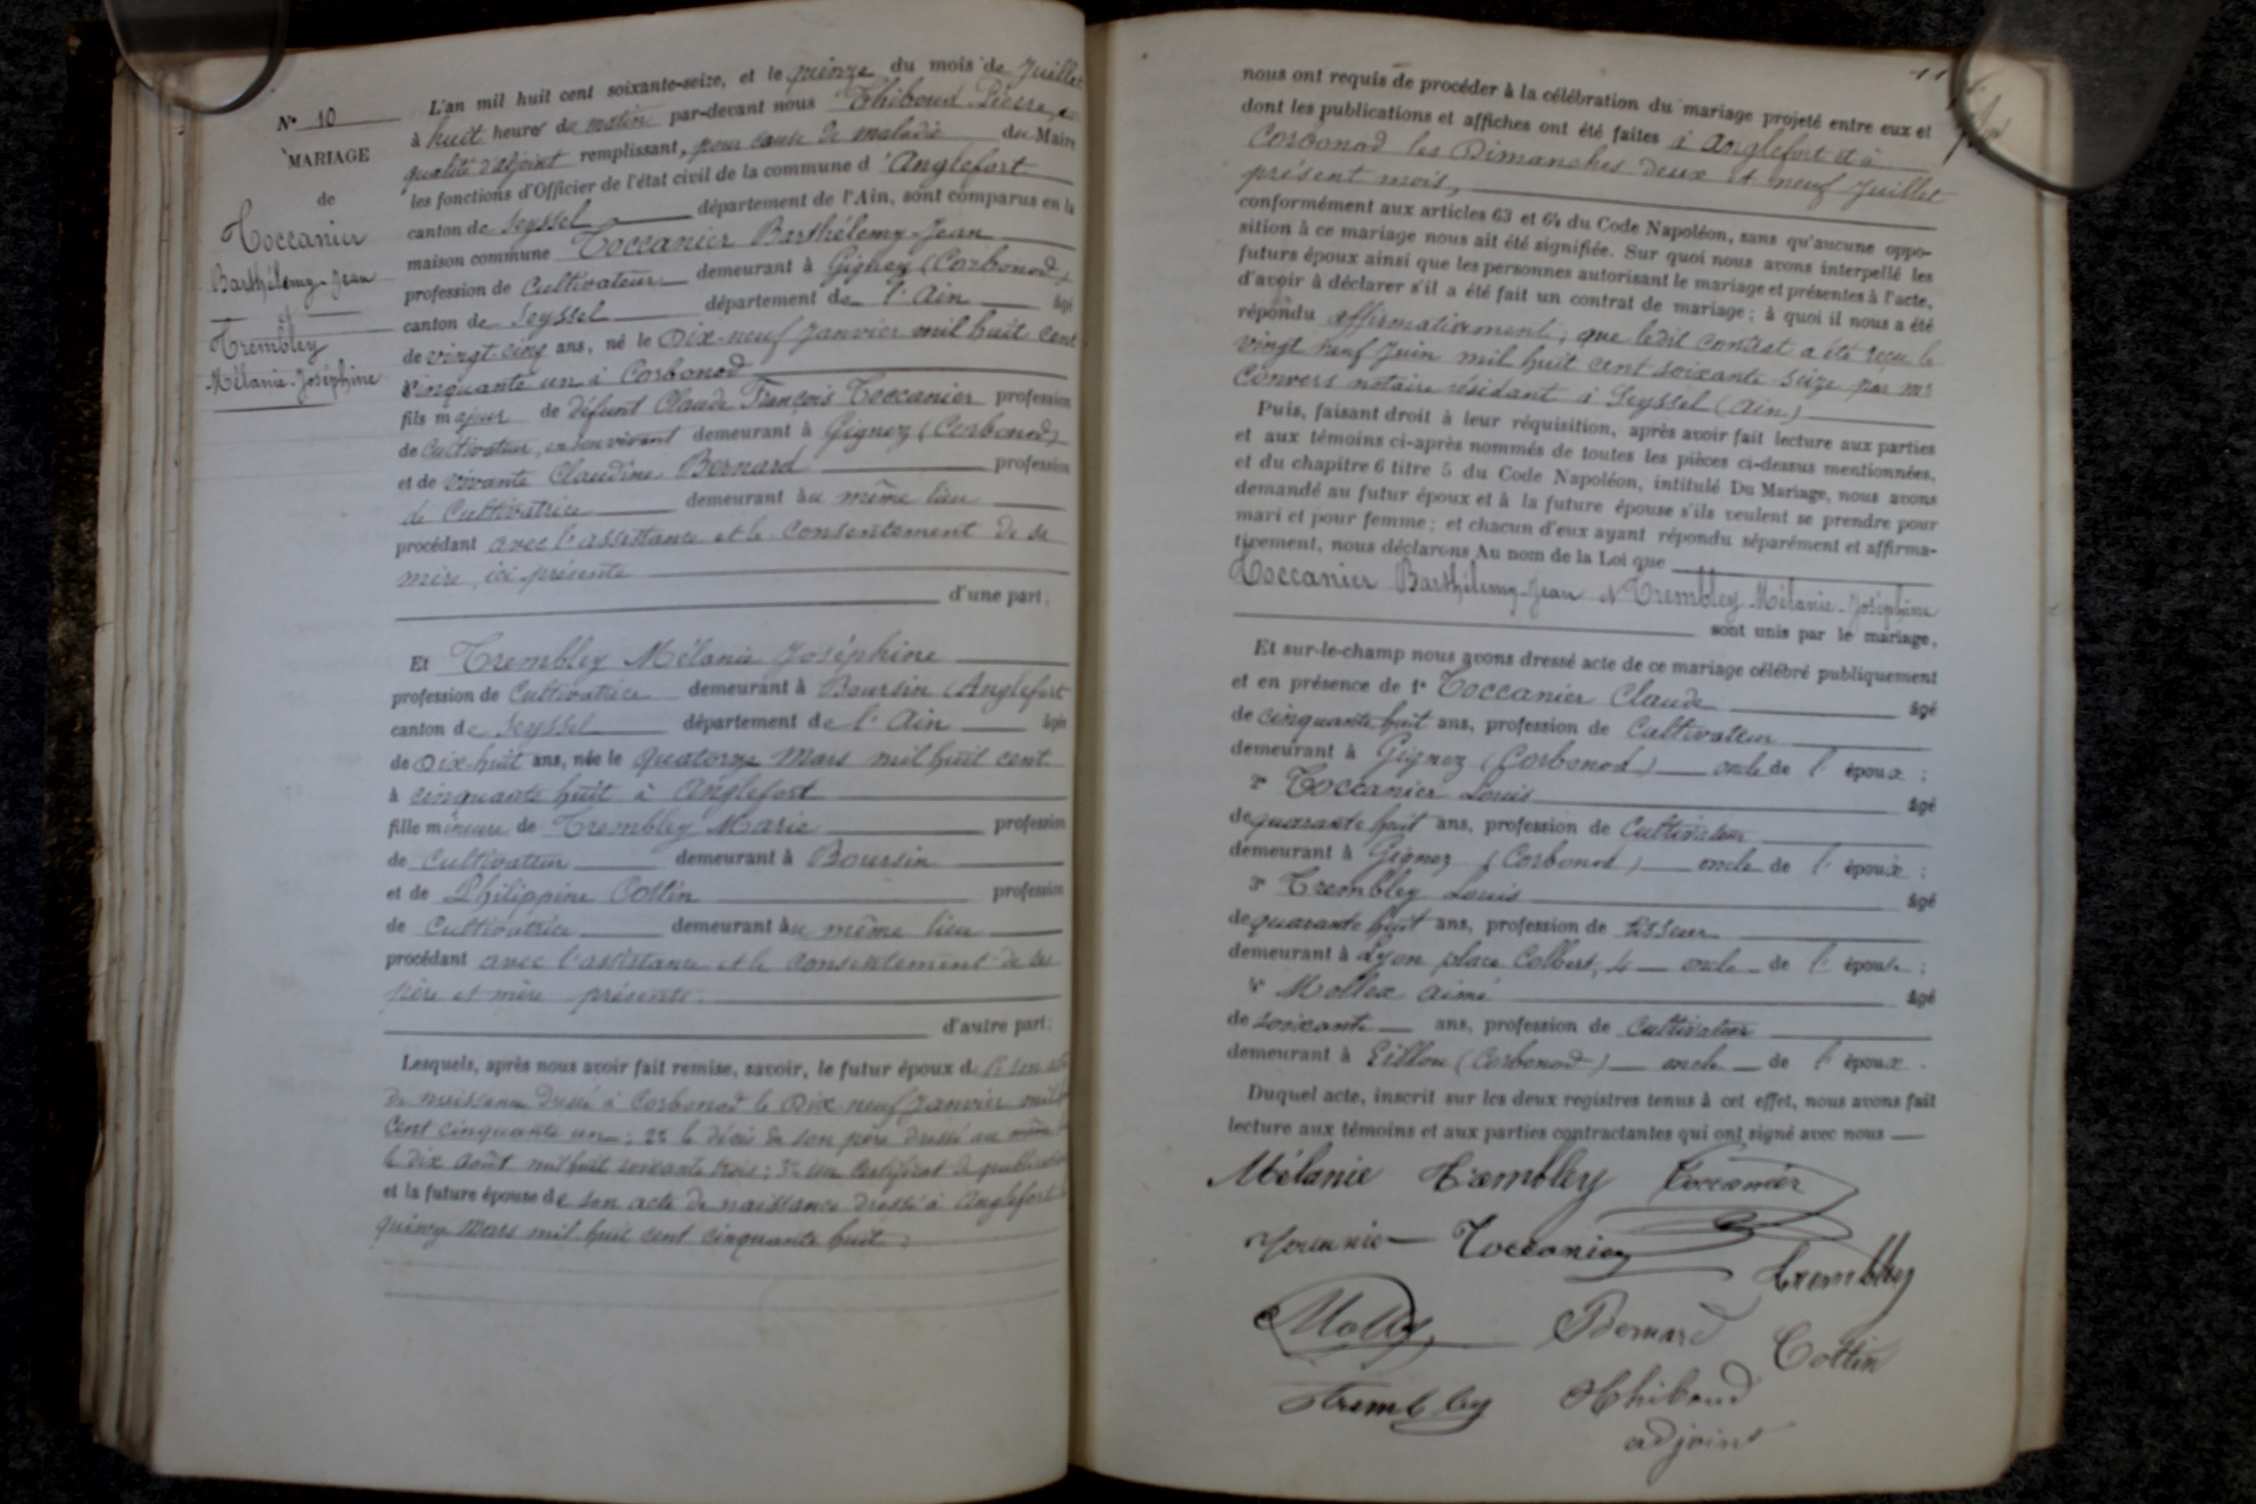 N° 10
MARIAGE
de
Toccanier
Barthélemy-Jean
et
Trembley
Mélanie-Joséphine
L'an mil huit cent soixante-seize, et le quinze du mois de Juillet
à huit heures du matin par-devant nous Thiboud Pierre, en
qualité d'adjoint remplissant, pour cause de maladie du Maire
les fonctions d'Officier de l'état civil de la commune d'Anglefort
canton de Seyssel département de l'Ain, sont comparus en la
maison commune Toccanier Barthélemy-Jean
profession de Cultivateur demeurant à Gignez (Corbonod)
canton de Seyssel département de l'Ain âgé
de vingt-cinq ans, né le Dix-neuf Janvier mil huit cent
cinquante un à Corbonod
fils majeur de défunt Claude François Toccanier profession
de Cultivateur, en son vivant demeurant à Gignez (Corbonod)
et de vivante Claudine Bernard profession
de Cultivatrice demeurant au même lieu
procédant avec l'assistance et le consentement de sa
mère, ici présente
d'une part;
Et Trembley Mélanie Joséphine
profession de Cultivatrice demeurant à Boursin (Anglefort
canton de Seyssel département de l'Ain âgée
de Dix-huit ans, née le quatorze Mars mil huit cent
à cinquante huit à Anglefort
fille mineure de Trembley Marie profession
de Cultivateur demeurant à Boursin
et de Philippine Cottin profession
de Cultivatrice demeurant au même lieu
procédant avec l'assistance et le consentement de ses
père et mère présents.
d'autre part;
Lesquels, après nous avoir fait remise, savoir, le futur époux de
de naissance dressé à Corbonod le Dix neuf Janvier mil
Cent cinquante un; 2° le décès de son père dressé au même
le dix Août mil huit soixante trois; 3° un Certificat de publication
et la future épouse de son acte de naissance dressé à Anglefort
quinze Mars mil huit cent cinquante huit;
11
nous ont requis de procéder à la célébration du mariage projeté entre eux et
dont les publications et affiches ont été faites à Anglefort et à
Corbonod les Dimanches deux et neuf Juillet
présent mois,
conformément aux articles 63 et 64 du Code Napoléon, sans qu'aucune oppo-
sition à ce mariage nous ait été signifiée. Sur quoi nous avons interpellé les
futurs époux ainsi que les personnes autorisant le mariage et présentes à l'acte,
d'avoir à déclarer s'il a été fait un contrat de mariage; à quoi il nous a été
répondu affirmativement; que ledit contrat a été reçu le
vingt neuf Juin mil huit cent soixante seize par Me
Convers notaire résidant à Seyssel (Ain)
Puis, faisant droit à leur réquisition, après avoir fait lecture aux parties
et aux témoins ci-après nommés de toutes les pièces ci-dessus mentionnées,
et du chapitre 6 titre 5 du Code Napoléon, intitulé Du Mariage, nous avons
demandé au futur époux et à la future épouse s'ils veulent se prendre pour
mari et pour femme; et chacun d'eux ayant répondu séparément et affirma-
tivement, nous déclarons Au nom de la Loi que
Toccanier Barthélemy-Jean et Trembley Mélanie-Joséphine
sont unis par le mariage.
Et sur-le-champ nous avons dressé acte de ce mariage célébré publiquement
et en présence de 1° Toccanier Claude âgé
de cinquante huit ans, profession de Cultivateur
demeurant à Gignez (Corbonod) oncle de l'époux;
2° Toccanier Louis âgé
de quarante huit ans, profession de Cultivateur
demeurant à Gignez (Corbonod) oncle de l'époux;
3° Trembley Louis âgé
de quarante huit ans, profession de tisseur
demeurant à Lyon place Colbert, 4 oncle de l'épouse;
4° Mollex Aimé âgé
de soixante ans, profession de Cultivateur
demeurant à Eilloux (Corbonod) oncle de l'époux.
Duquel acte, inscrit sur les deux registres tenus à cet effet, nous avons fait
lecture aux témoins et aux parties contractantes qui ont signé avec nous
Mélanie Trembley Toccanier
Toccanier
Trembley
Mollex Bernard Cottin
Trembley Thiboud
adjoint